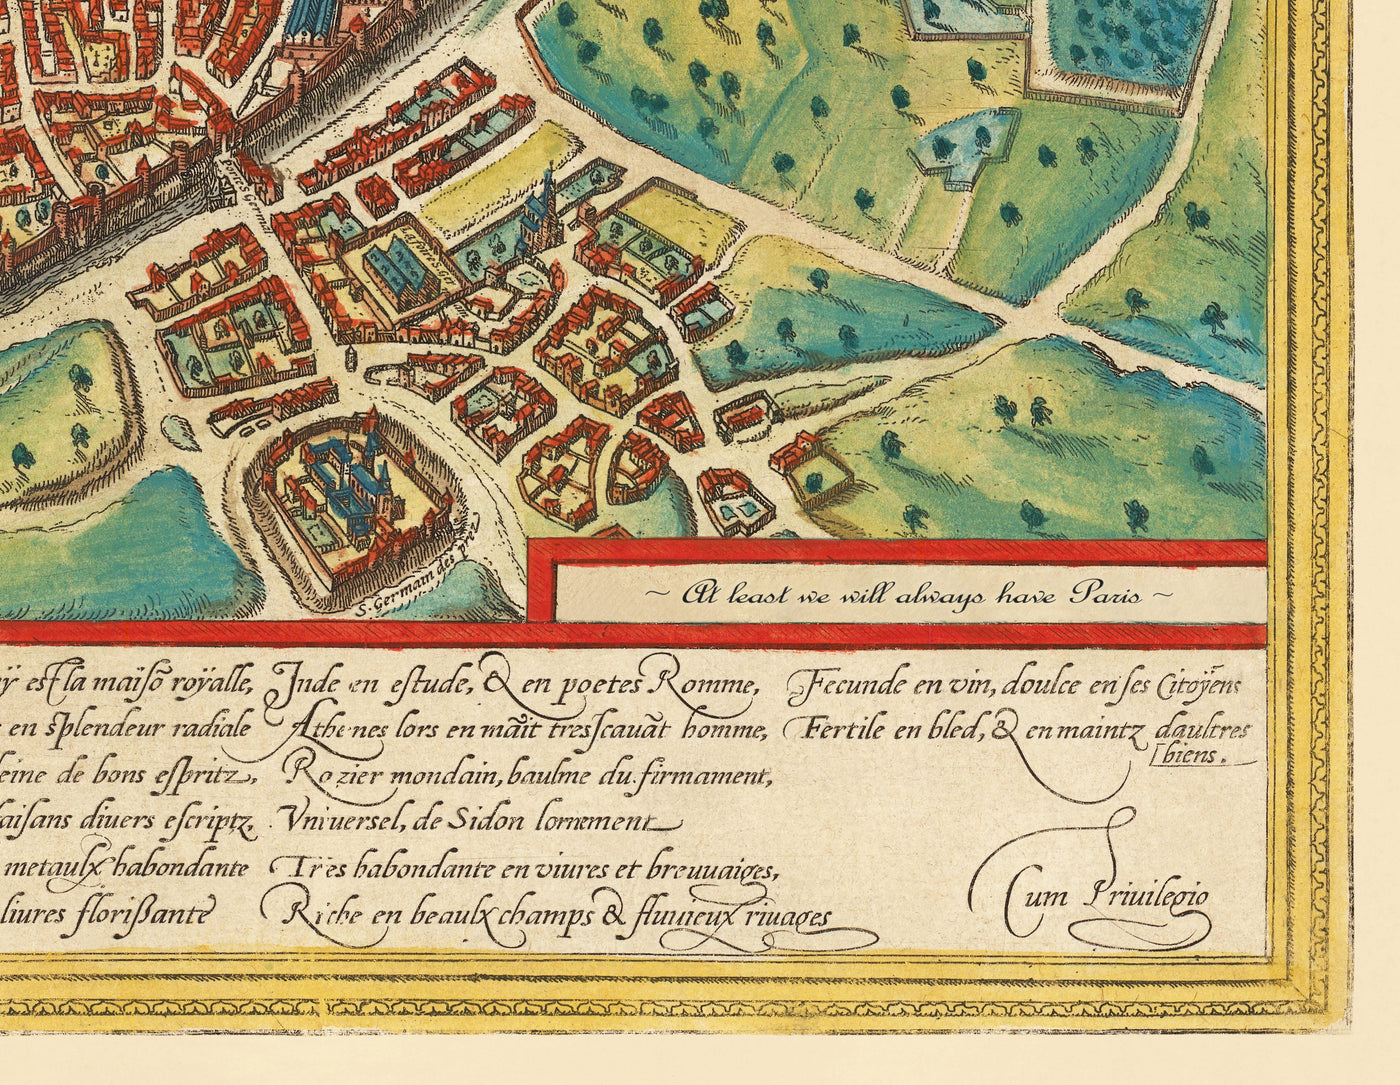 Portes S. Germ
S. Germain des prez
~ At least we will always have Paris ~
ÿ est la maisõ roÿalle,
en splendeur radiale
eine de bons espritz,
aisans diuers escriptz,
metaulx habondante
liures florißante
Inde en estude, & en poetes Romme,
Athenes lors en mãit tresscauãt homme,
Rozier mondain, baulme du firmament,
Vniuersel, de Sidon lornement
Tres habondante en viures et breuuaiges,
Riche en beaulx champs & fluuieux riuages
Fecunde en vin, doulce en ses Citoÿens
Fertile en bled, & en maintz daultres
biens.
Cum Priuilegio